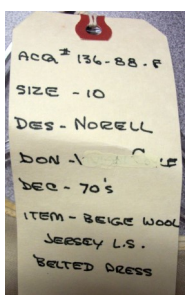 ACQ# 136-88-F
SIZE - 10
DES - NORELL
DON -
DEC - 70's
ITEM - BEIGE WOOL
JERSEY L.S.
BELTED DRESS